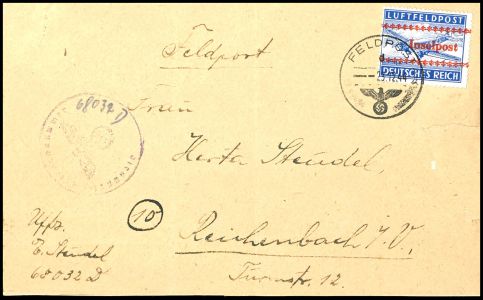 LUFTFELDPOST
Inselpost
DEUTSCHES REICH
FELDPOST
Feldpost
68032 D
Frau
Herta Steudel
10
Reichenbach i. V.,
Turnstr. 12.
Uffz.
E. Steudel
68032 D